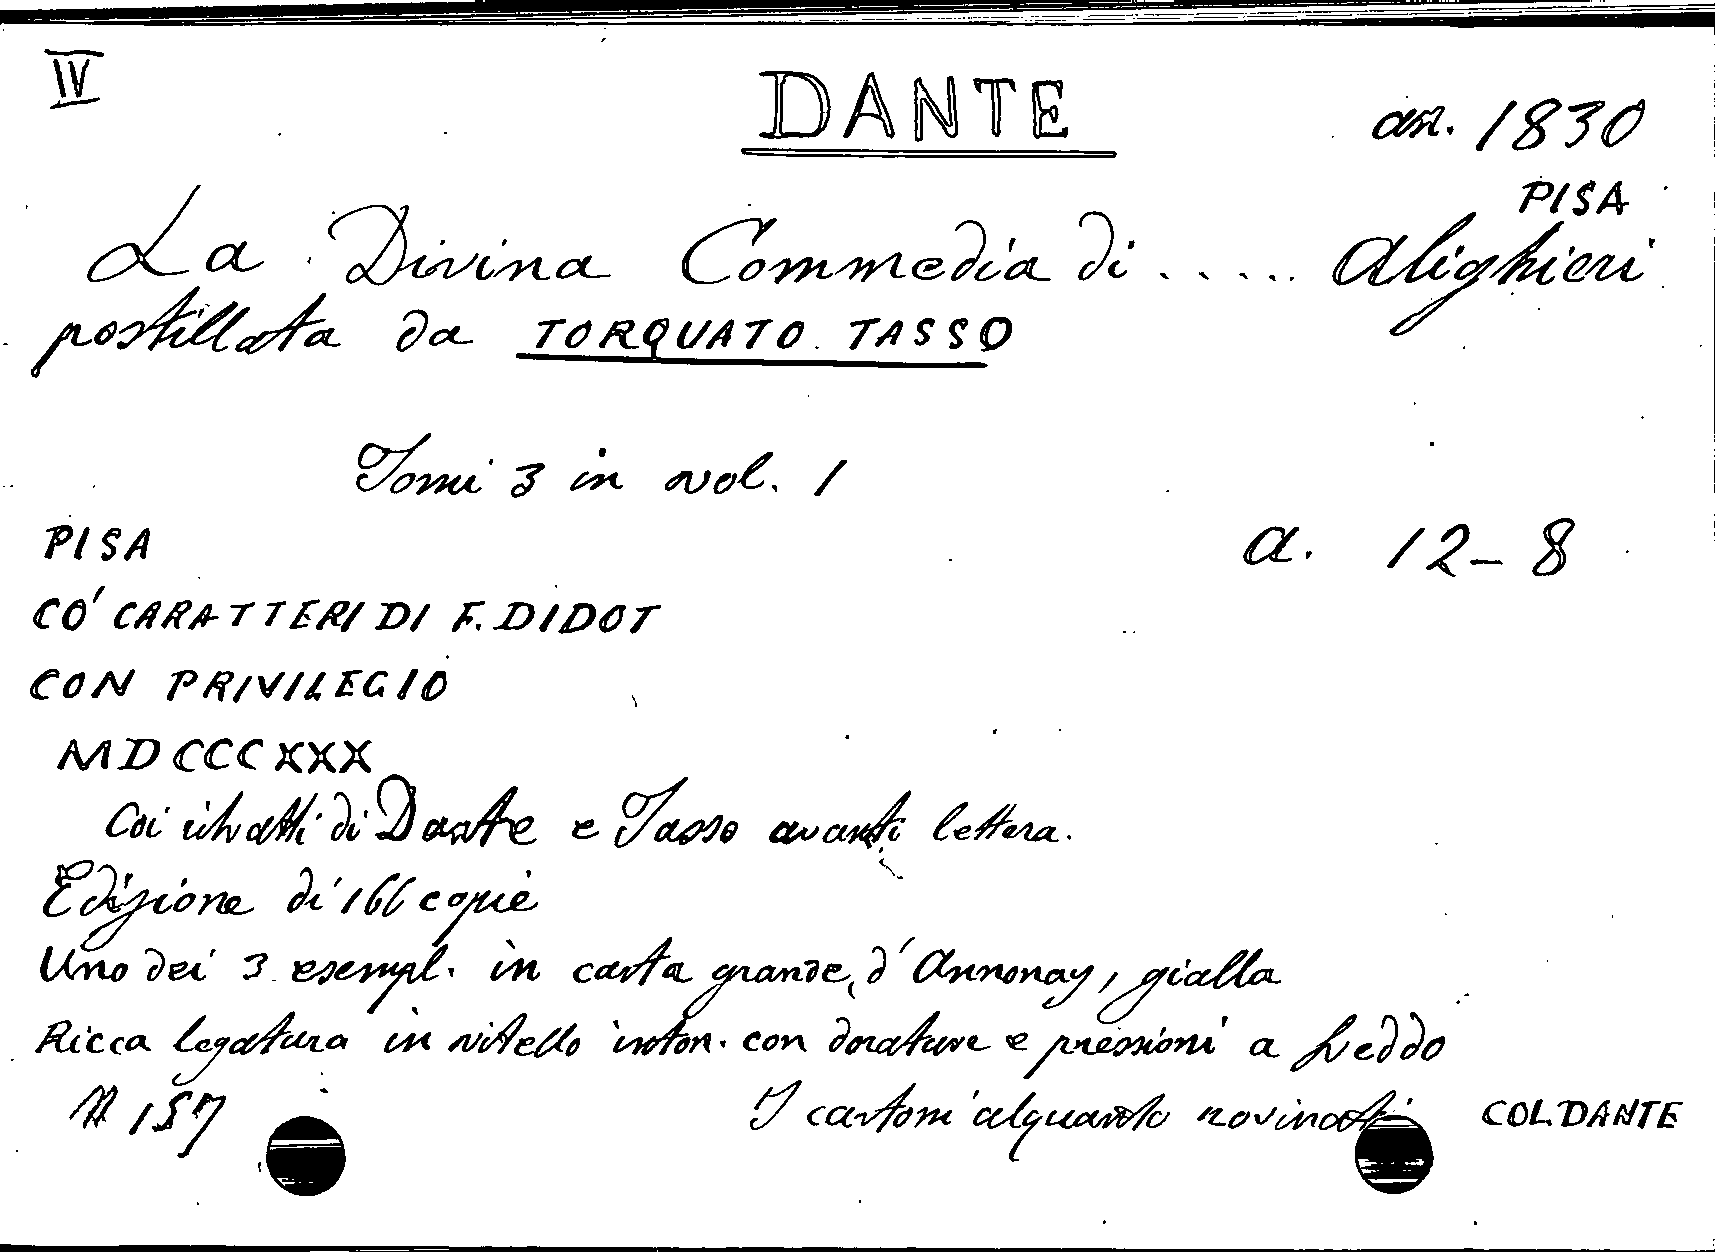 IV
DANTE
an. 1830
PISA
La Divina Commedia di ..... Alighieri
postillata da TORQUATO TASSO
Tomi 3 in vol. 1
PISA
a. 12-8
CO' CARATTERI DI F. DIDOT
CON PRIVILEGIO
MDCCCXXX
Coi ritratti di Dante e Tasso avanti lettera.
Edizione di 166 copie
Uno dei 3 esempl. in carta grande, d'Annonay, gialla
Ricca legatura in vitello inton. con dorature e pressioni a freddo
N 157
I cartoni alquanto rovinati
COL. DANTE